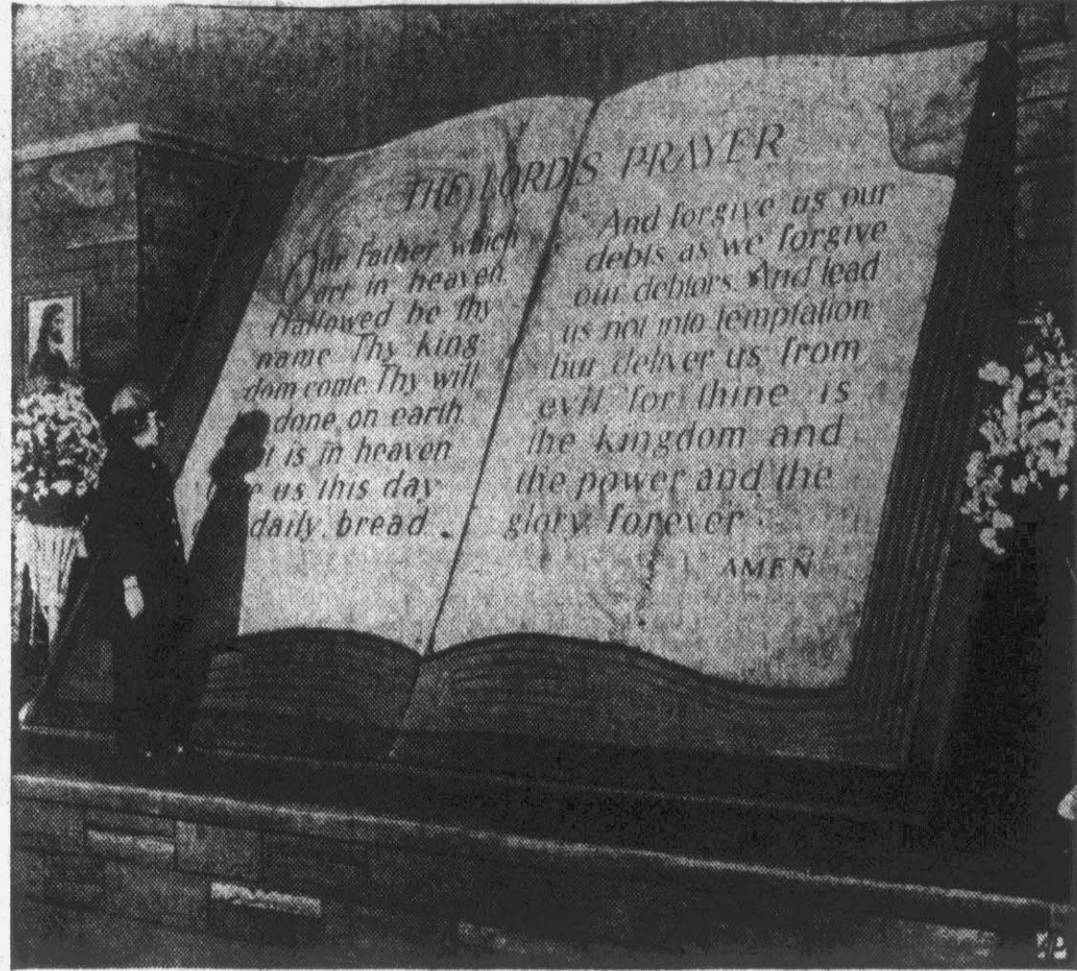 THE LORD'S PRAYER
Our Father which
art in heaven
Hallowed be thy
name Thy king
dom come. Thy will
done on earth
it is in heaven
us this day
daily bread.
And forgive us our
debts as we forgive
our debtors. And lead
us not into temptation
but deliver us from
evil: for thine is
the kingdom and
the power and the
glory, forever
AMEN